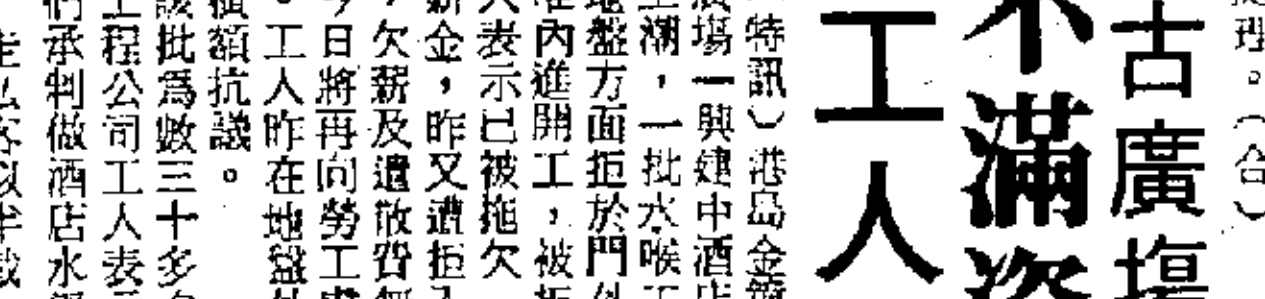 理。(合)
古廣場
不滿資
工人
特訊)港島金鐘
廣場一興建中酒店
工潮,一批水喉工
地盤方面拒於門外
准內進開工,被拒
人表示已被拖欠
薪金,昨又遭拒入
,欠薪及遣散費無
今日將再向勞工處
。工人昨在地盤外
橫額抗議。
該批爲數三十多名
工程公司工人表示
們承判做酒店水
走私客以半截